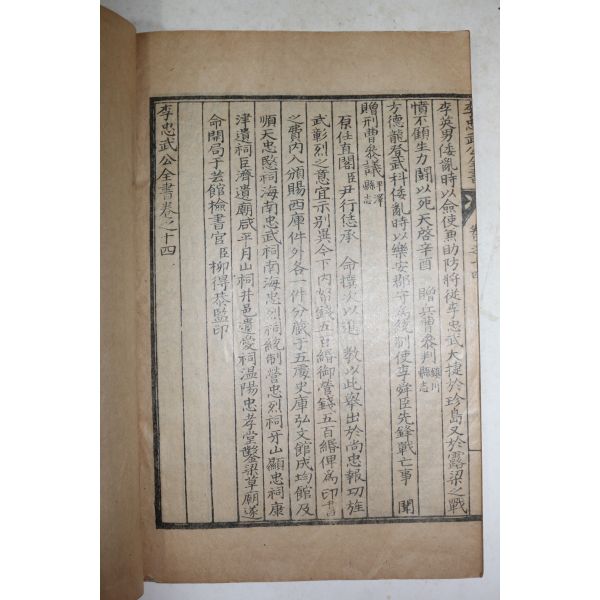 李忠武公全書 卷之十四
李英男倭亂時以僉使兼助防將從李忠武大捷於珍島又於露梁之戰
憤不顧生力鬪以死天啓辛酉 贈兵曹參判 鎭川縣志
方德龍登武科倭亂時以樂安郡守爲統制使李舜臣先鋒戰亡事 聞
贈刑曹參議 平澤縣志
原任直閣臣尹行恁承 命撰次以進 敎以此擧出於尙忠報功旌
武彰烈之意宜示別異今下內帑錢五百緡御營錢五百緡俾爲印書
之費內入頒賜西庫件外各一件分藏于五處史庫弘文館成均館及
順天忠愍祠海南忠武祠南海忠烈祠統制營忠烈祠牙山顯忠祠康
津遺祠巨濟遺廟咸平月山祠井邑遺愛祠溫陽忠孝堂鑿梁草廟遂
命開局于芸館檢書官臣柳得恭監印
李忠武公全書卷之十四